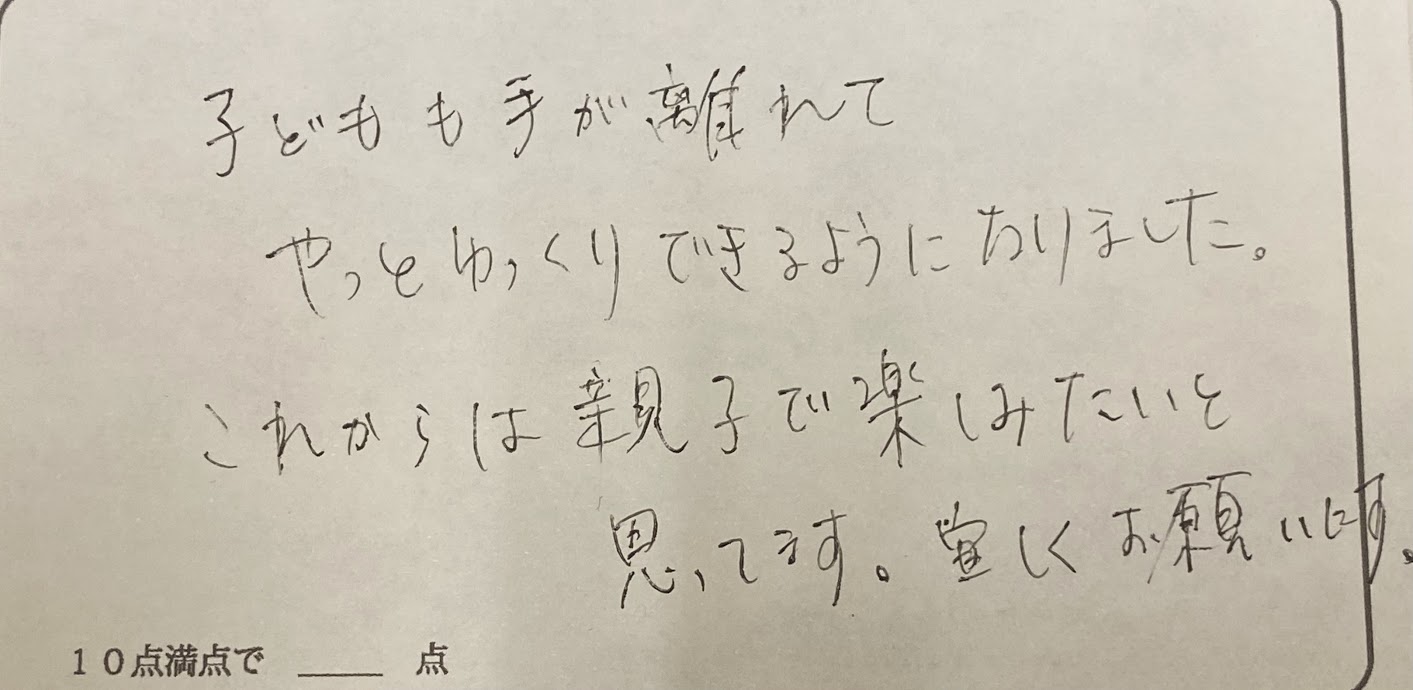 子どもも手が離れて
やっとゆっくりできるようになりました。
これからは親子で楽しみたいと
思ってます。宜しくお願いします。
10点満点で ____ 点